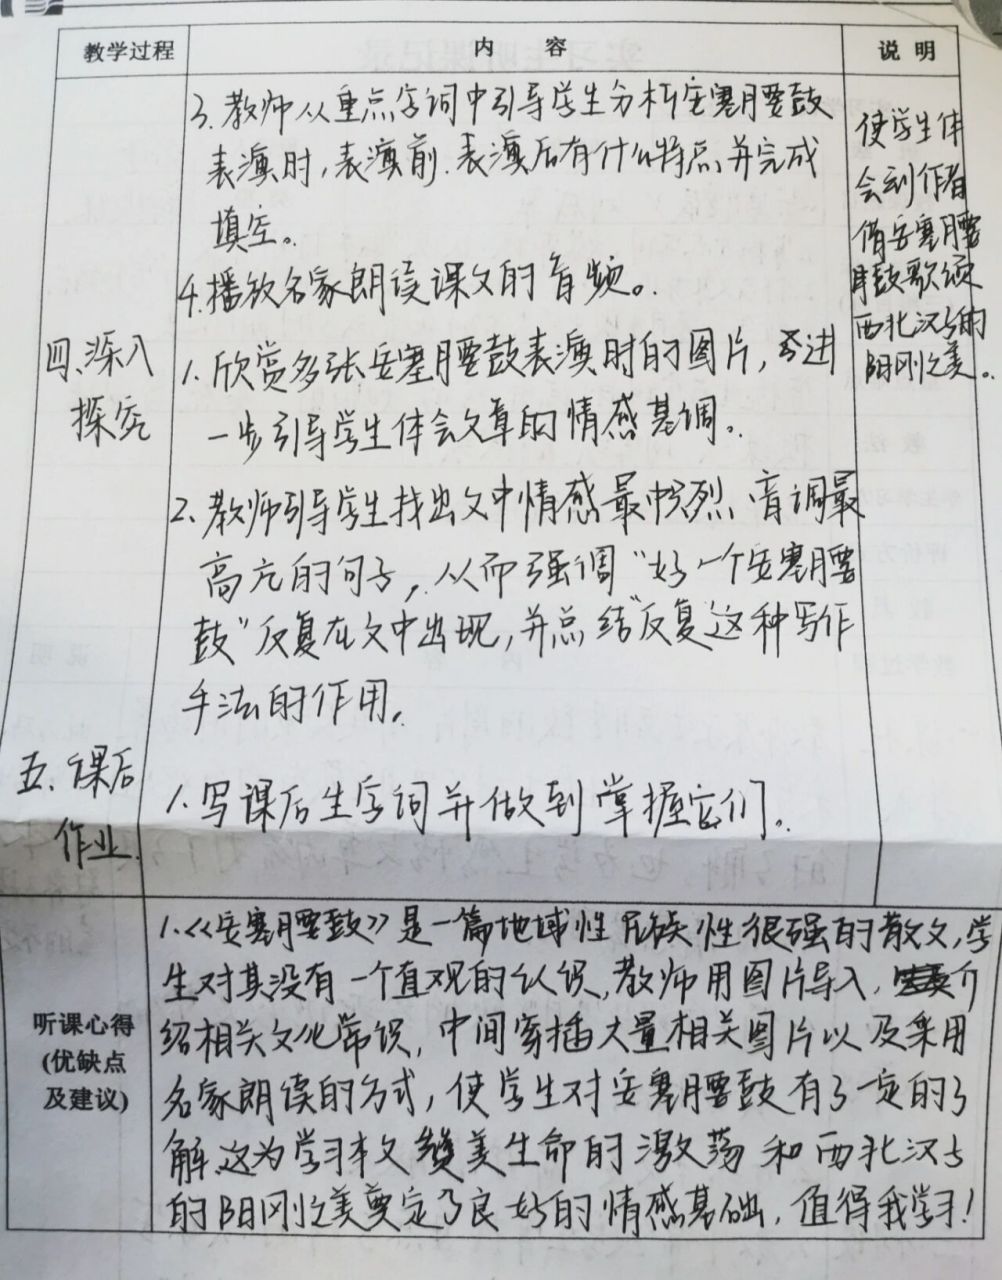 教学过程 内 容 说 明
3.教师从重点字词中引导学生分析安塞腰鼓
表演时,表演前.表演后有什么特点,并完成
填空。
4.播放名家朗读课文的音频。
使学生体
会到作者
借安塞腰
鼓歌颂
西北汉子的
阳刚之美。
四、深入
探究
1.欣赏多张安塞腰鼓表演时的图片,进
一步引导学生体会文章的情感基调。
2.教师引导学生找出文中情感最炽烈 音调最
高亢的句子,从而强调“好一个安塞腰
鼓”反复在文中出现,并点结“反复”这种写作
手法的作用。
五、课后
作业.
1.写课后生字词并做到掌握它们。
听课心得
(优缺点
及建议)
1.《安塞腰鼓》是一篇地域性 民族性很强的散文,学
生对其没有一个直观的认识,教师用图片导入,介
绍相关文化常识,中间穿插大量相关图片以及采用
名家朗读的方式,使学生对安塞腰鼓有了一定的了
解,这为学习本文赞美生命的激荡和西北汉子
的阳刚之美奠定了良好的情感基础,值得我学习!